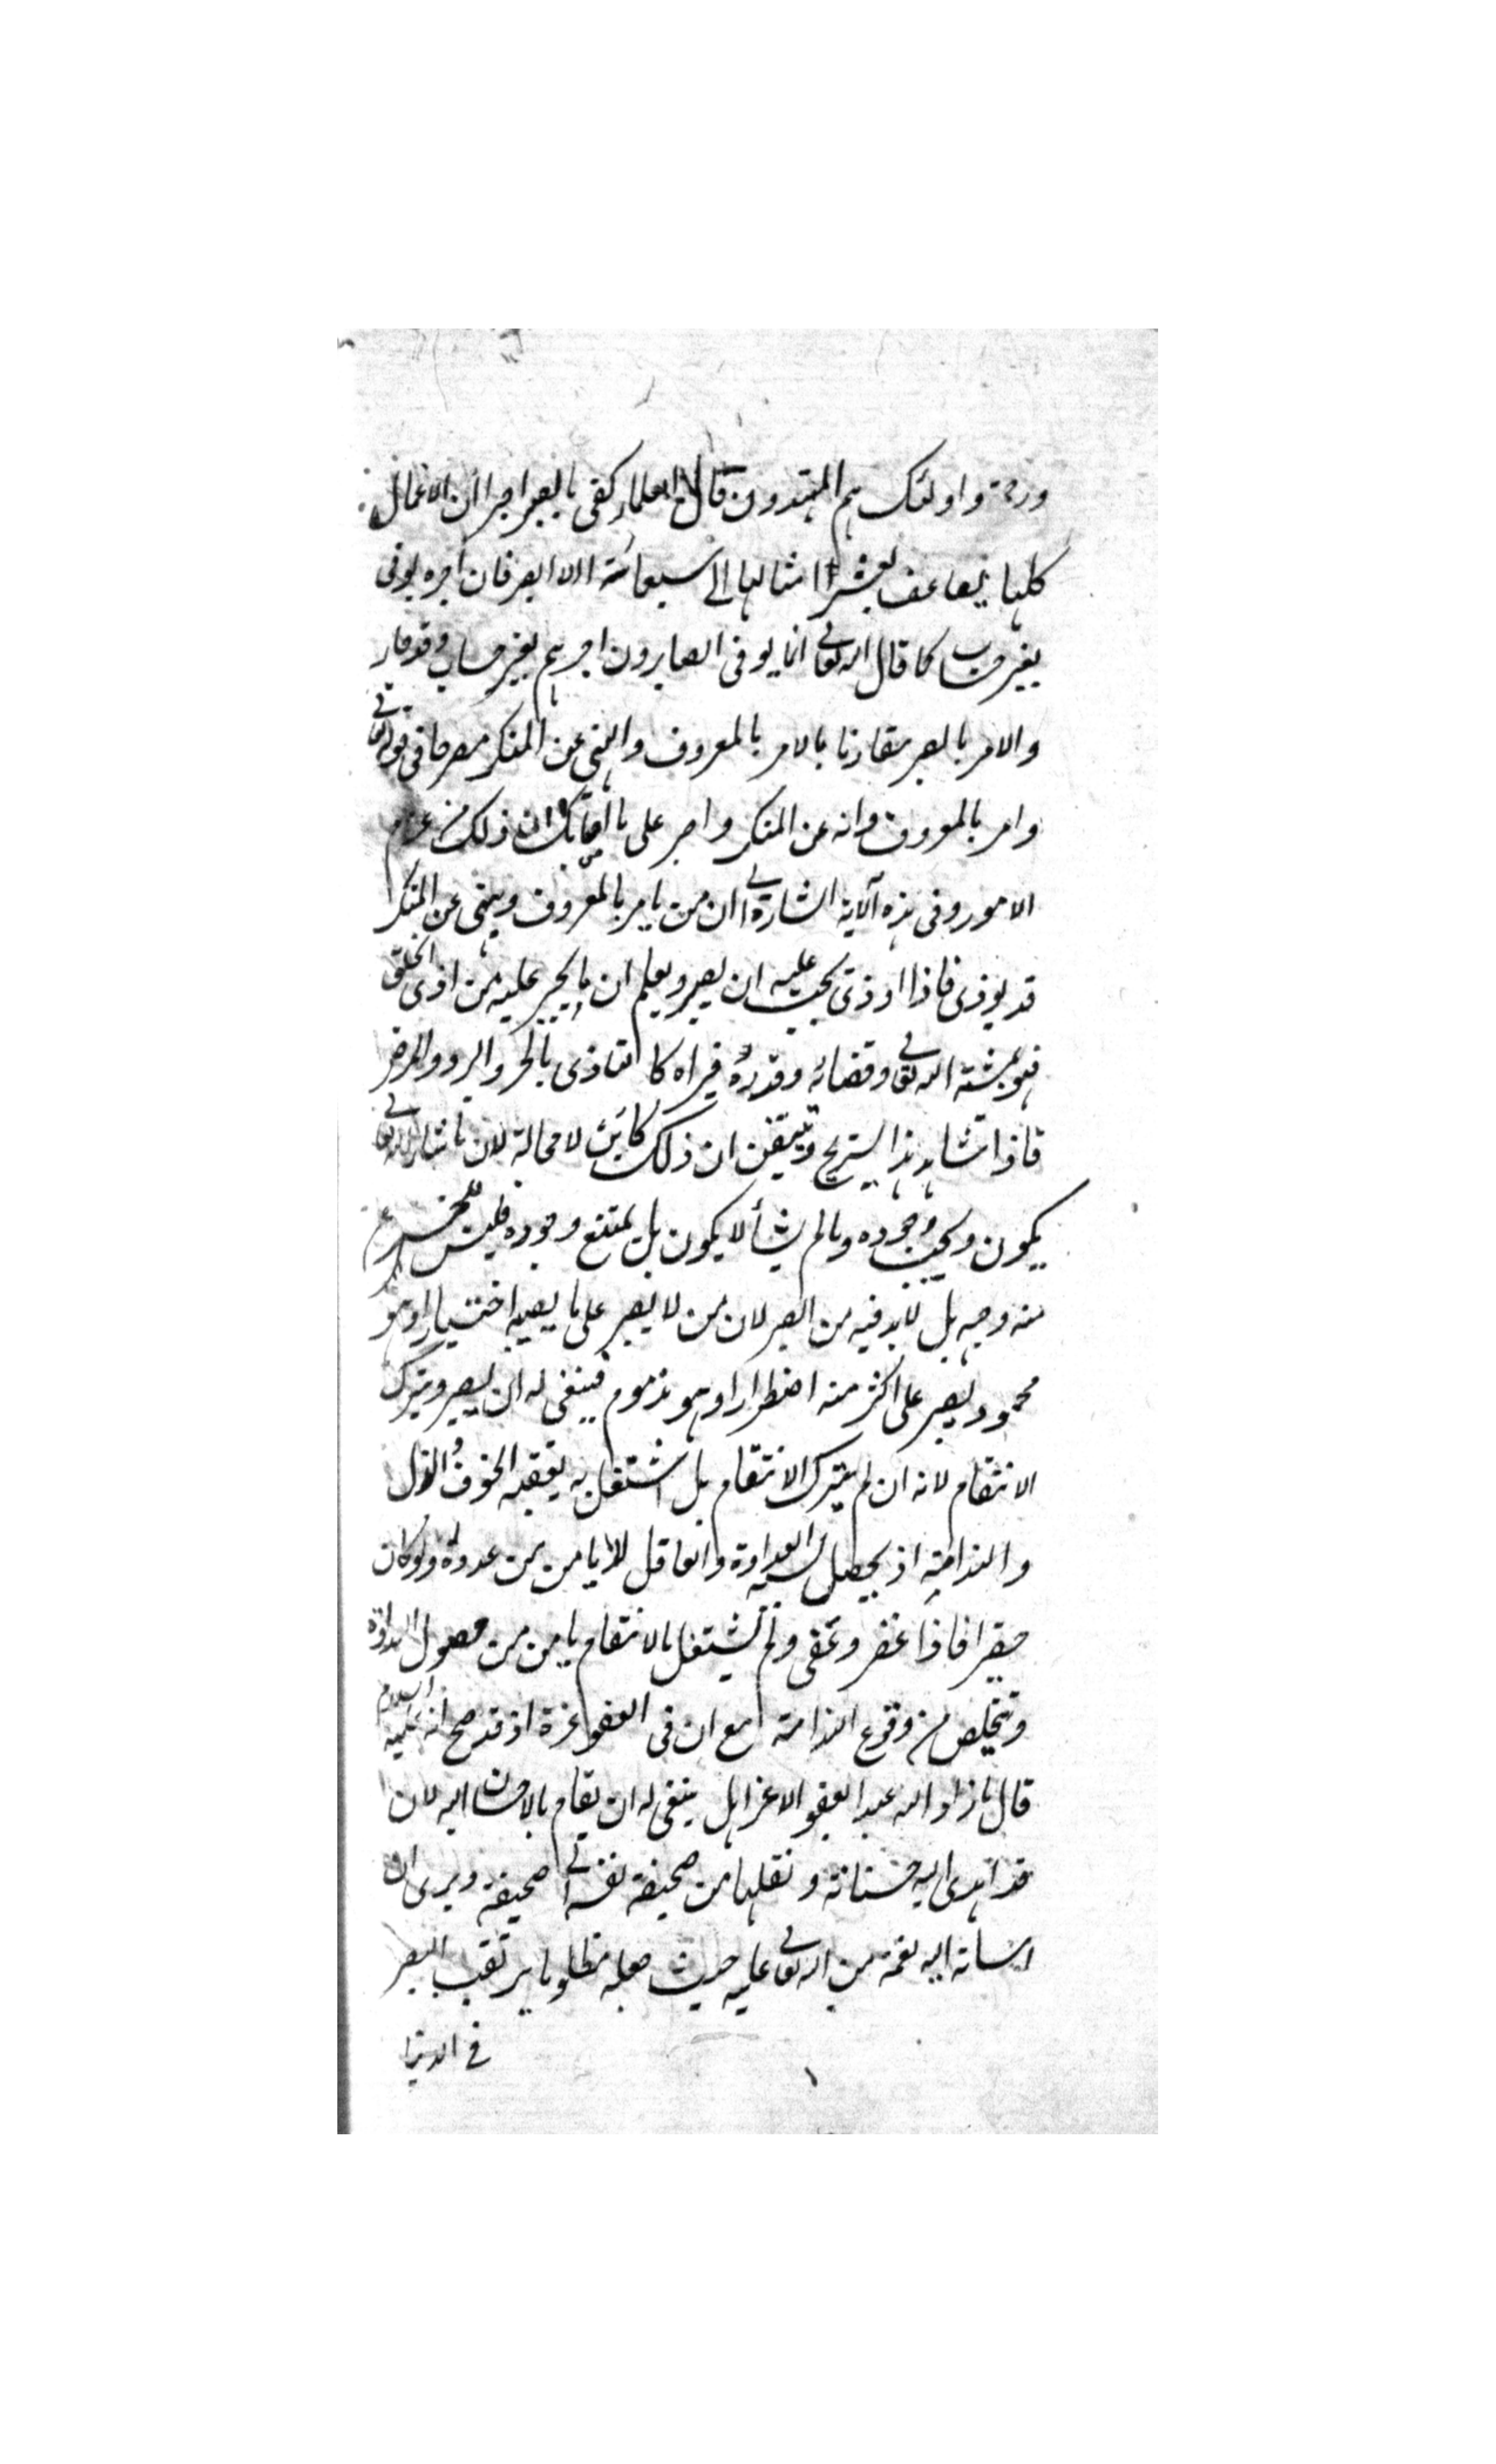 ورحمة واولئك هم المهتدون قال العلماء كفى بالصبر اجرا ان الاعمال
كلها يضاعف بعشر امثالها الى سبعمائة الا الصبر فان اجره يوفى
بغير حساب كما قال الله تعالى انما يوفى الصابرون اجرهم بغير حساب وقد جاء
والامر بالصبر مقارنا بالامر بالمعروف والنهى عن المنكر مصرحا فى قوله تعالى
وامر بالمعروف وانه عن المنكر واصبر على ما اصابك ان ذلك من عزم
الامور وفى هذه الآية اشارة الى ان من يامر بالمعروف وينهى عن المنكر
قد يوذى فاذا اوذى يجب عليه ان يصبر ويعلم ان ما يجرى عليه من اذى الخلق
فهو بمشيئة الله تعالى وقضائه وقدره فيراه كالتاذى بالحر والبرد والمرض
فاذا شاهد هذا يستريح ويتيقن ان ذلك كائن لا محالة لان ما شاء الله تعالى
يكون ويجب وجوده وما لم يشأ لا يكون بل يمتنع وجوده فليس للجزع
منه وجه بل لابد فيه من الصبر لان من لا يصبر على ما يصيبه اختيارا وهو
محمود يصبر على اكثر منه اضطرارا وهو مذموم فينبغى له ان يصبر ويترك
الانتقام لانه ان لم يترك الانتقام بل اشتغل به يعقبه الخوف والذل
والندامة اذ يحصل العداوة والعاقل لا يامن من عدوه ولو كان
حقيرا فاذا غفر وعفى ولم يشتغل بالانتقام يامن من حصول العداوة
ويتخلص من وقوع الندامة مع ان فى العفو عزة اذ قد صح انه عليه السلام
قال ما زاد الله عبدا بعفو الا عزا بل ينبغى له ان يقابل بالاحسان اليه لان
قد اهدى اليه حسناته ونقلها من صحيفة نفسه الى صحيفته ويرى ان
اساءته اليه نعمة من الله تعالى عليه حيث جعله مظلوما يرتقب النصر
فى الدنيا